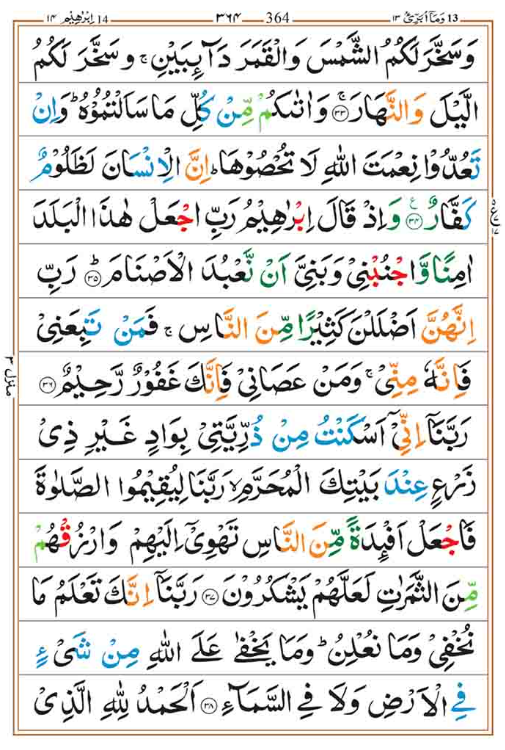 14 اِبْرٰهِيْم ١٤ 364 ٣٦٤ 13 وَمَآ اُبَرِّئُ ١٣
وَسَخَّرَ لَكُمُ الشَّمْسَ وَالْقَمَرَ دَآئِبَيْنِ ۚ وَسَخَّرَ لَكُمُ
الَّيْلَ وَالنَّهَارَ ۚ ﴿۳۳﴾ وَاٰتٰىكُمْ مِّنْ كُلِّ مَا سَاَلْتُمُوْهُ ؕ وَاِنْ
تَعُدُّوْا نِعْمَتَ اللّٰهِ لَا تُحْصُوْهَا ؕ اِنَّ الْاِنْسَانَ لَظَلُوْمٌ
كَفَّارٌ ﴿۳۴﴾ ع وَاِذْ قَالَ اِبْرٰهِيْمُ رَبِّ اجْعَلْ هٰذَا الْبَلَدَ
اٰمِنًا وَّاجْنُبْنِيْ وَبَنِيَّ اَنْ نَّعْبُدَ الْاَصْنَامَ ؕ ﴿۳۵﴾ رَبِّ
اِنَّهُنَّ اَضْلَلْنَ كَثِيْرًا مِّنَ النَّاسِ ۚ فَمَنْ تَبِعَنِيْ
فَاِنَّهٗ مِنِّيْ ۚ وَمَنْ عَصَانِيْ فَاِنَّكَ غَفُوْرٌ رَّحِيْمٌ ﴿۳۶﴾
رَبَّنَاۤ اِنِّيْۤ اَسْكَنْتُ مِنْ ذُرِّيَّتِيْ بِوَادٍ غَيْرِ ذِيْ
زَرْعٍ عِنْدَ بَيْتِكَ الْمُحَرَّمِ ۙ رَبَّنَا لِيُقِيْمُوا الصَّلٰوةَ
فَاجْعَلْ اَفْئِدَةً مِّنَ النَّاسِ تَهْوِيْۤ اِلَيْهِمْ وَارْزُقْهُمْ
مِّنَ الثَّمَرٰتِ لَعَلَّهُمْ يَشْكُرُوْنَ ﴿۳۷﴾ رَبَّنَاۤ اِنَّكَ تَعْلَمُ مَا
نُخْفِيْ وَمَا نُعْلِنُ ؕ وَمَا يَخْفٰى عَلَى اللّٰهِ مِنْ شَيْءٍ
فِي الْاَرْضِ وَلَا فِي السَّمَآءِ ﴿۳۸﴾ اَلْحَمْدُ لِلّٰهِ الَّذِيْ
منزل ۳